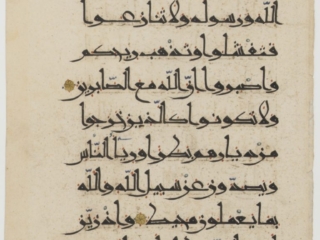 الله ورسوله ولا تنازعوا
فتفشلوا وتذهب ريحكم
واصبروا ان الله مع الصابرين
ولا تكونوا كالذين خرجوا
من ديارهم بطرا ورياء الناس
ويصدون عن سبيل الله والله
بما يعملون محيط واذ زين